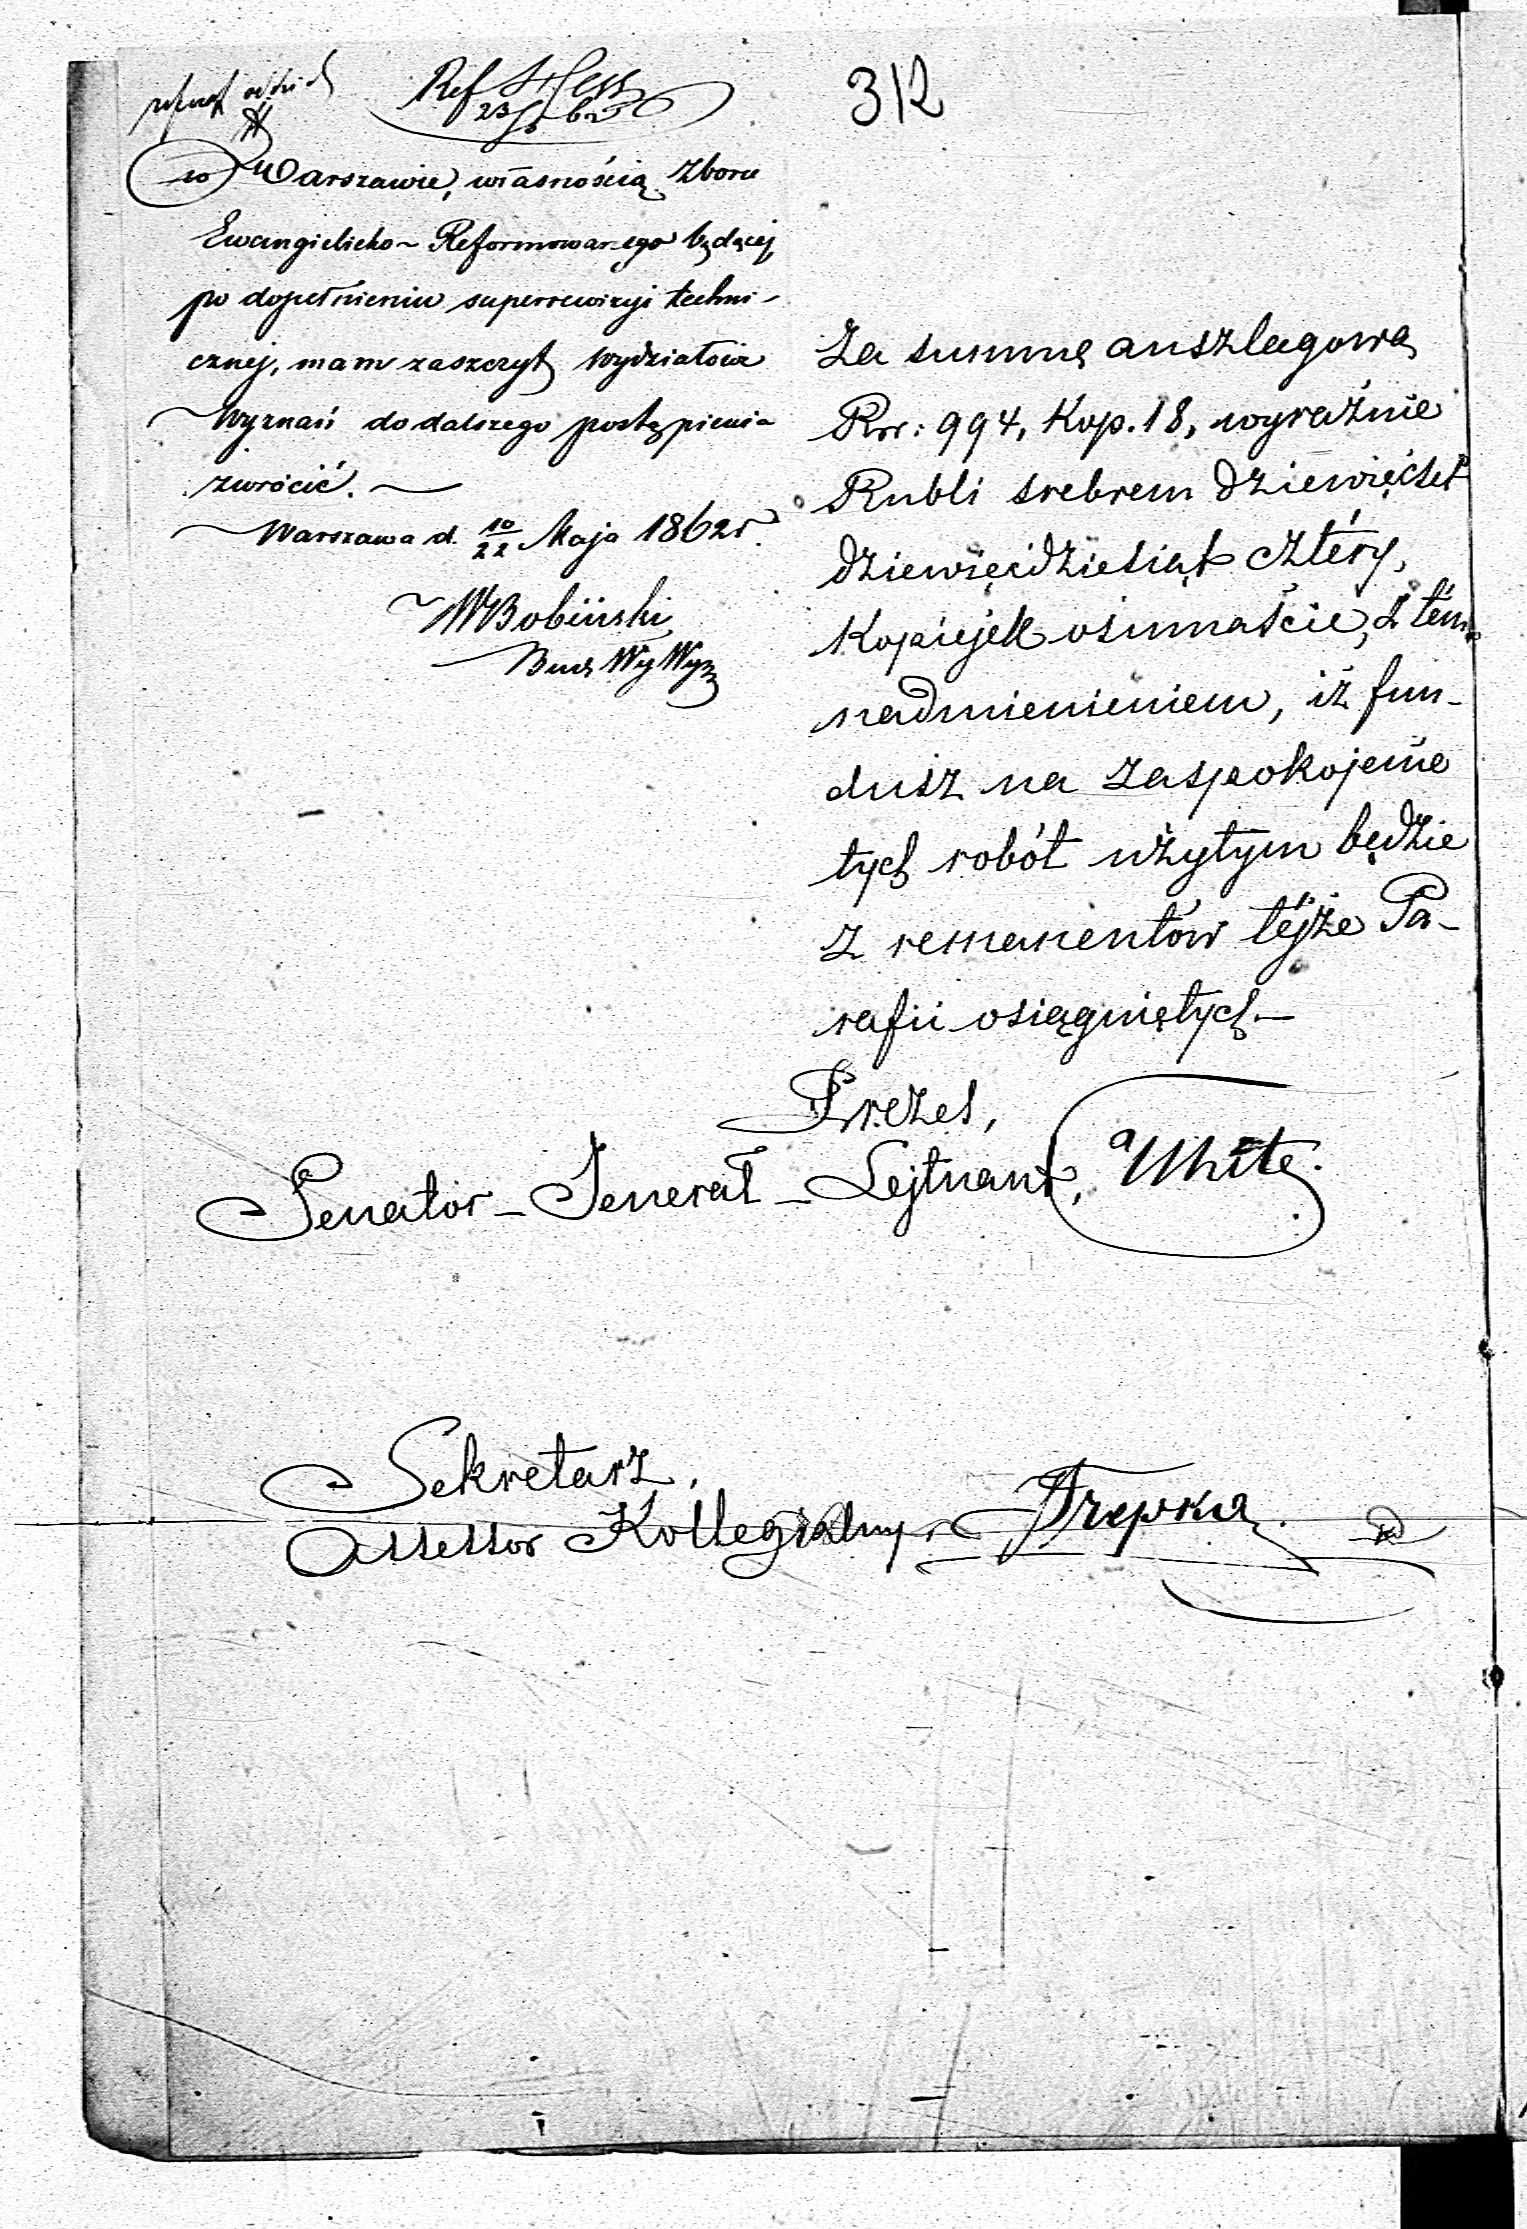 312
Ref Hess
23/5 62
w Warszawie, własnością Zboru
Ewangielicko-Reformowanego będącej,
po dopełnieniu superrewizyi techni-
cznej, mam zaszczyt Wydziałowi
Wyznań do dalszego postąpienia
zwrócić.
Warszawa d. 10/22 Maja 1862 r.
WBobiński
Bud. Wy Wyz
Za summę anszlagową
Rsr: 994, Kop. 18, wyraźnie
Rubli srebrem dziewięćset
dziewięćdziesiąt cztéry,
Kopiejek ośmnaście, z tém
nadmienieniem, iż fun-
dusz na zaspokojenie
tych robót użytym będzie
z remanentów téjże Pa-
rafii osiągniętych.—
Prezes,
Senator-Jenerał-Lejtnant, White.
Sekretarz,
Assessor Kollegialny, Trepka